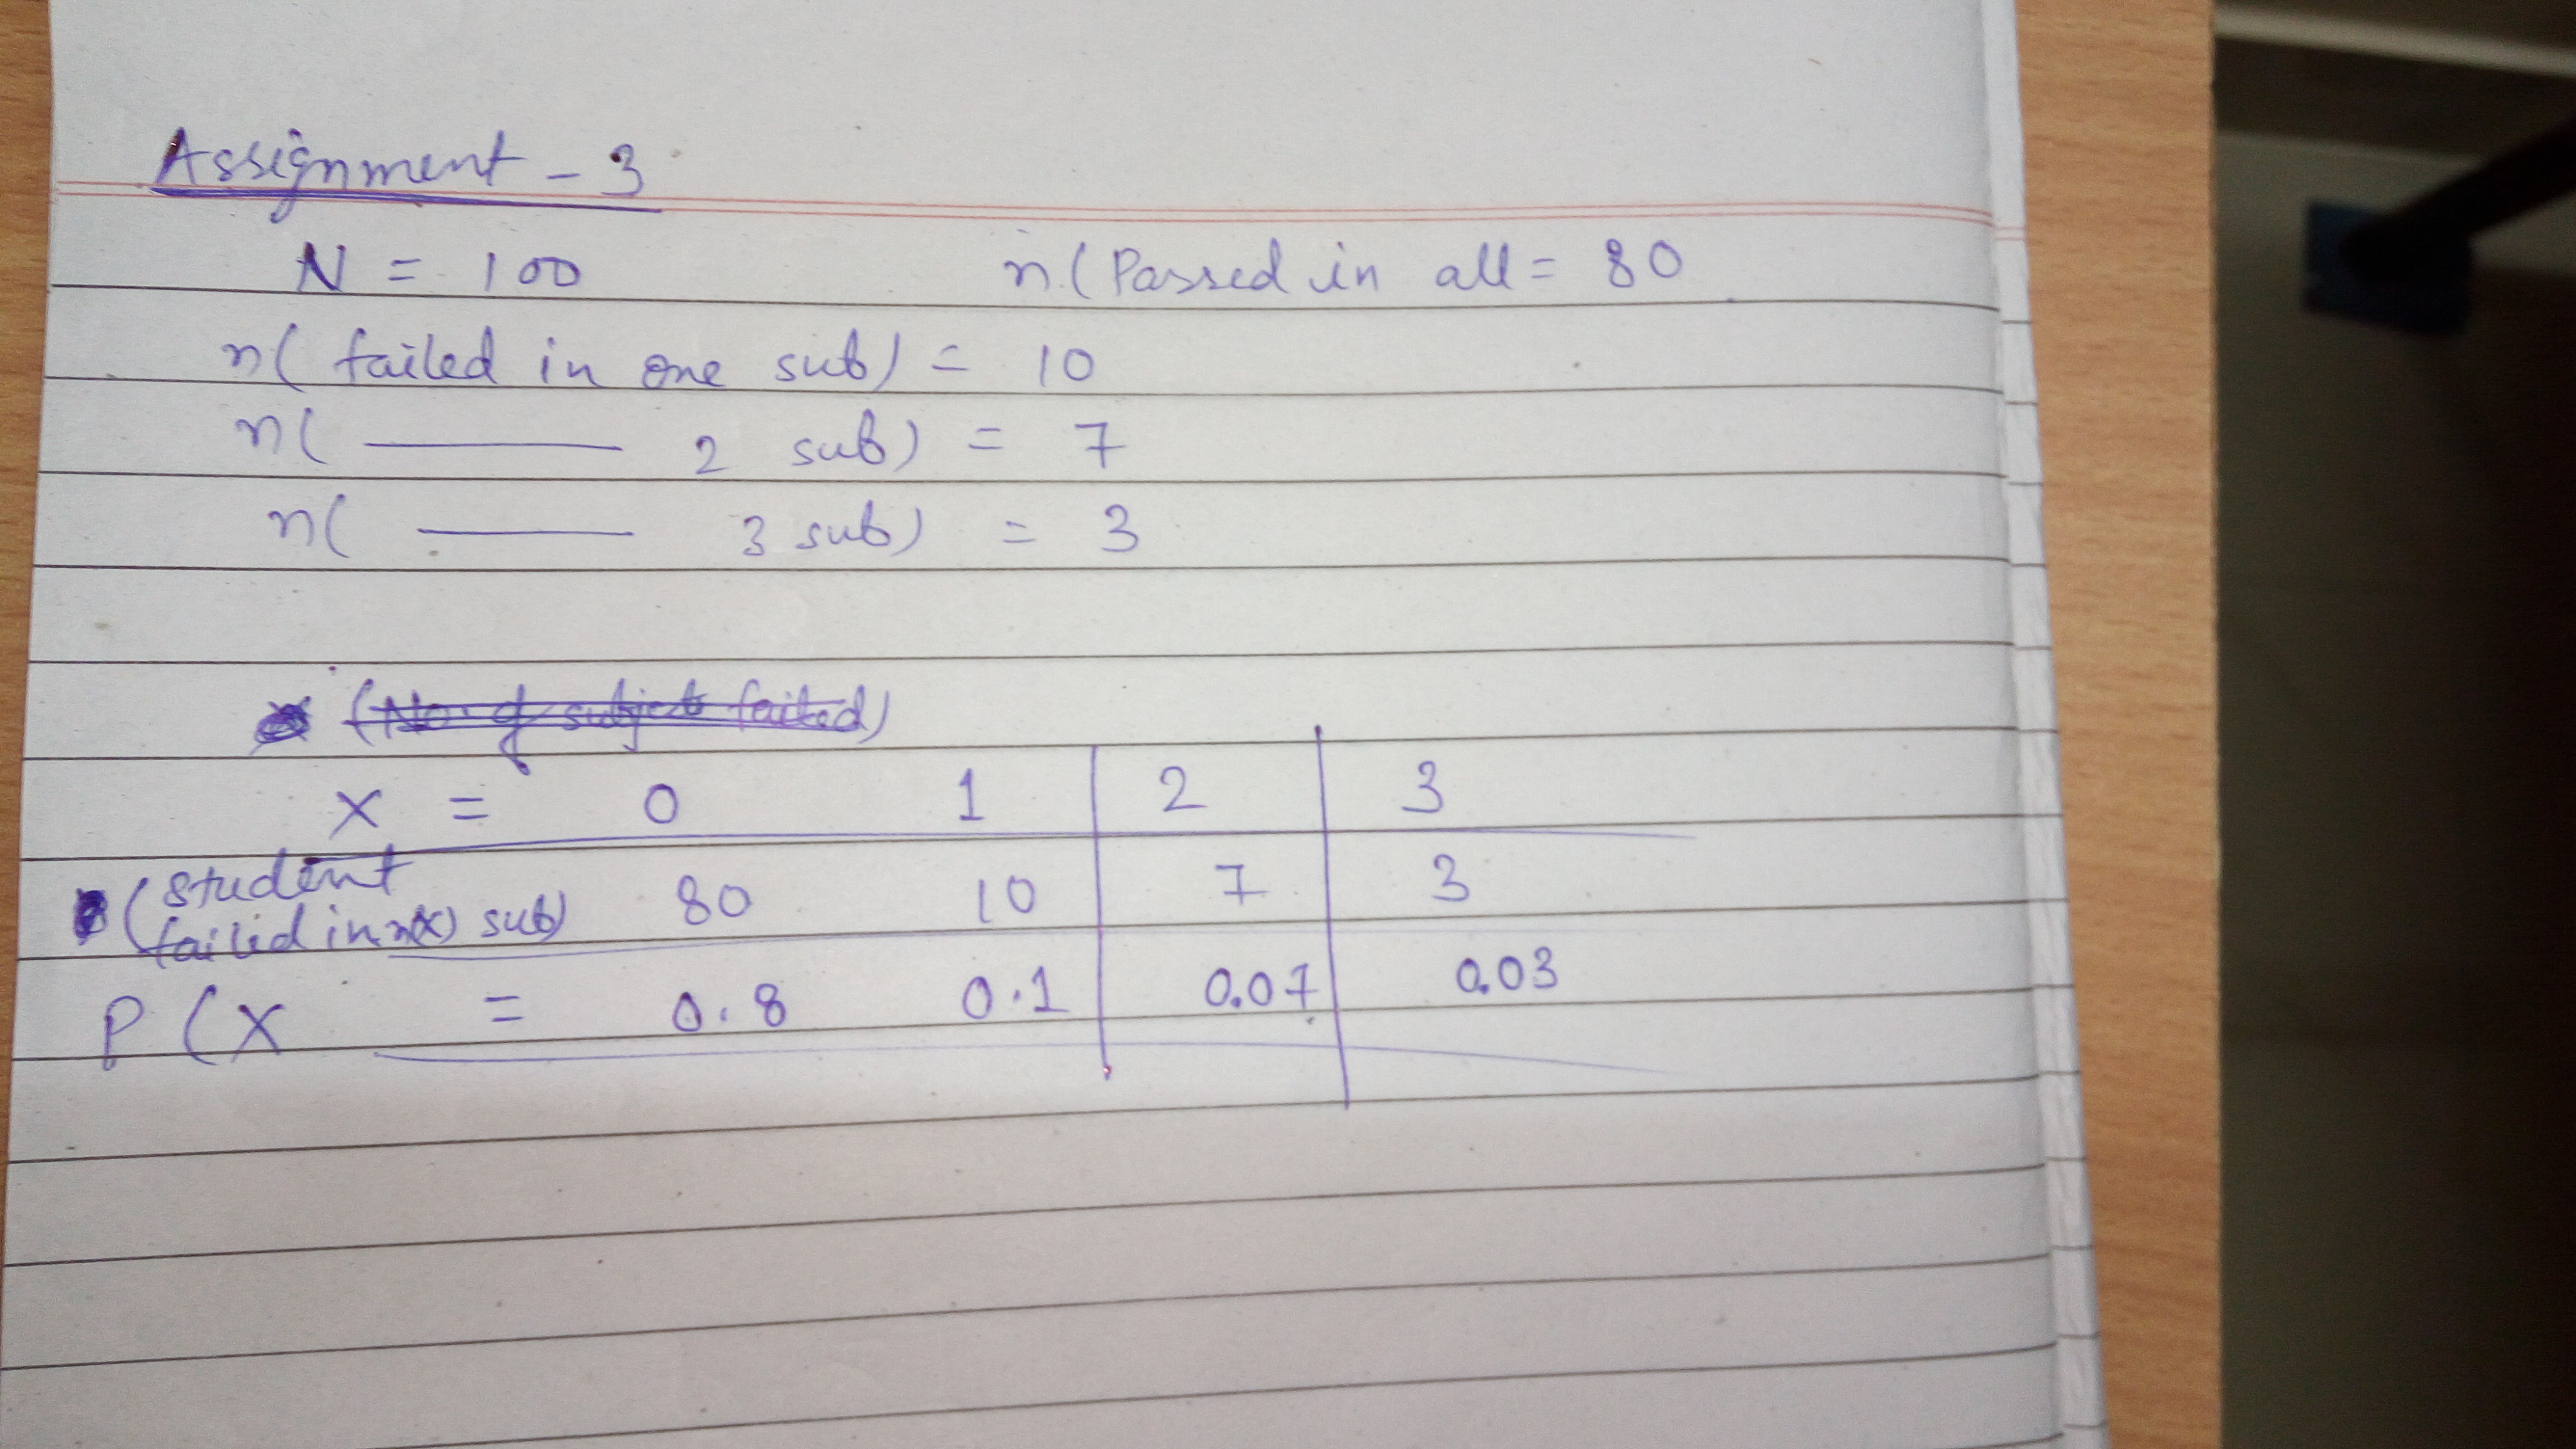 Assignment - 3
N = 100 n(Passed in all = 80
n( failed in one sub) = 10
n( ——— 2 sub) = 7
n( ——— 3 sub) = 3
(No. of subject failed)
X = 0 1 2 3
(student
failed in (x) sub) 80 10 7 3
P(X = 0.8 0.1 0.07 0.03